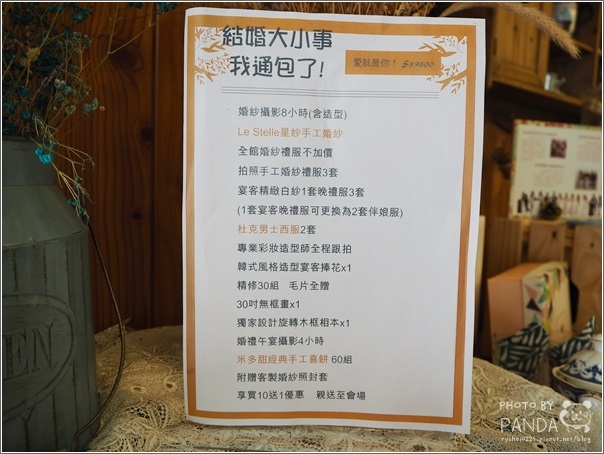 結婚大小事
我通包了!
愛就是你! $89800
婚紗攝影8小時(含造型)
Le Stelle星紗手工婚紗
全館婚紗禮服不加價
拍照手工婚紗禮服3套
宴客精緻白紗1套晚禮服3套
(1套宴客晚禮服可更換為2套伴娘服)
杜克男士西服2套
專業彩妝造型師全程跟拍
韓式風格造型宴客捧花x1
精修30組 毛片全贈
30吋無框畫x1
獨家設計旋轉木框相本x1
婚禮午宴攝影4小時
米多甜經典手工喜餅 60組
附贈客製婚紗照封套
享買10送1優惠 親送至會場
PHOTO BY
PANDA